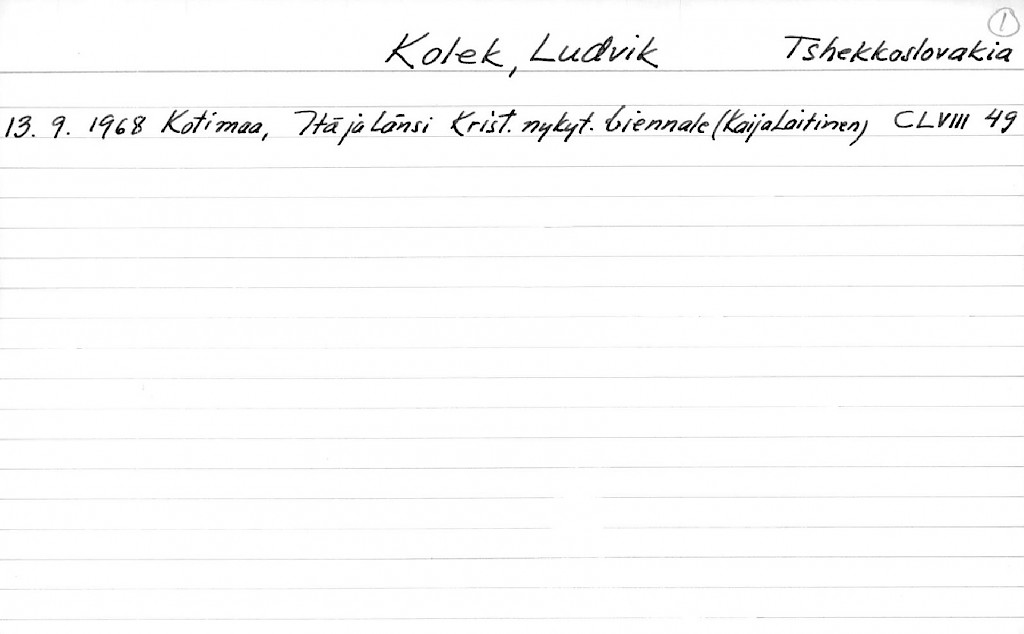 1
Kolek, Ludvik Tshekkoslovakia
13. 9. 1968 Kotimaa, Itä ja Länsi Krist. nykyt. biennale (Kaija Laitinen) CLVIII 49